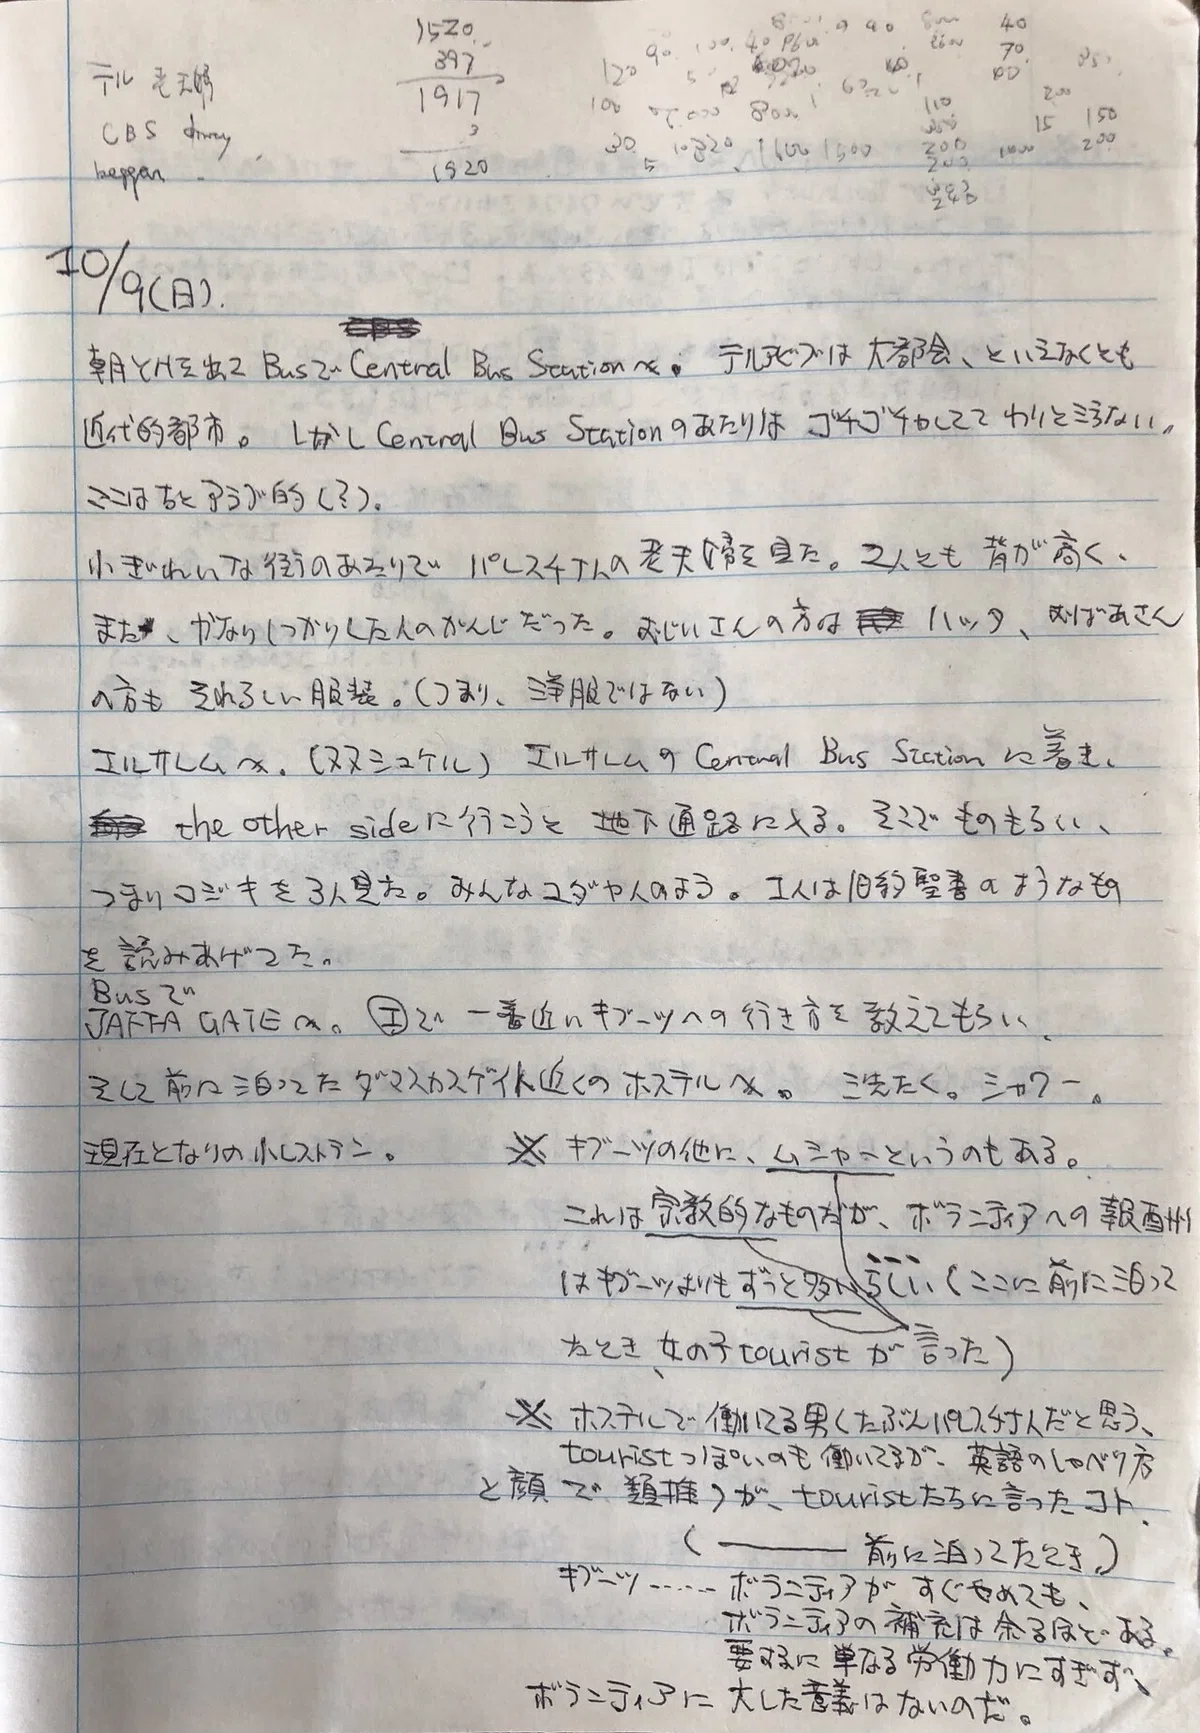 1520
397
1917
3
1920
テル 老夫婦
CBS
beggar
40
70
120
100
30
110
200
15 150
200
10/9(日).
朝YHを出て BusでCentral Bus Stationへ。 テルアビブは大都会、といえなくとも
近代的都市。 しかしCentral Bus Stationのあたりは ゴチゴチャしてて わりときえない。
ここはちとアラブ的(?)。
小ぎれいな街のあたりで パレスチナ人の老夫婦を見た。2人とも 背が高く、
また、かなりしっかりした人のかんじだった。おじいさんの方は ハッタ、おばあさん
の方も それらしい服装。(つまり、洋服ではない)
エルサレムへ。(ヌヌシュケル) エルサレムのCentral Bus Stationに着き、
the other sideに行こうと 地下通路に入る。そこでものもらい、
つまりコジキを3人見た。みんなユダヤ人のよう。1人は旧約聖書のようなもの
を読みあげてた。
Busで
JAFFA GATEへ。 iで一番近いキブーツへの行き方を教えてもらい、
そして前に泊ってたダマスカスゲイト近くのホステルへ。 洗たく。シャワー。
現在となりの小レストラン。
※ キブーツの他に、ムシャーというのもある。
これは宗教的なものだが、ボランティアへの報酬
はキブーツよりもずっと多いらしい(ここに前に泊って
たとき、女の子touristが言った)
※ ホステルで働いてる男(たぶんパレスチナ人だと思う、
touristっぽいのも働いてるが、英語のしゃべり方
と顔で類推)が、touristたちに言ったコト、
(——— 前に泊ってたとき。)
キブーツ……ボランティアがすぐやめても、
ボランティアの補充は余るほどある。
要するに単なる労働力にすぎず、
ボランティアに大した意義はないのだ。